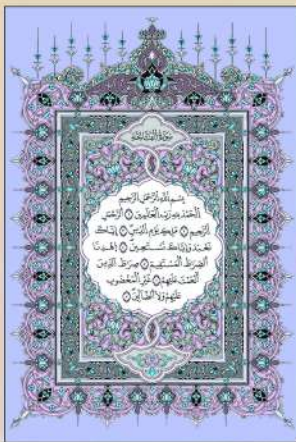 سورة الفاتحة
بسم الله الرحمن الرحيم
الحمد لله رب العالمين الرحمن
الرحيم ملك يوم الدين إياك
نعبد وإياك نستعين اهدنا
الصراط المستقيم صراط الذين
أنعمت عليهم غير المغضوب
عليهم ولا الضالين